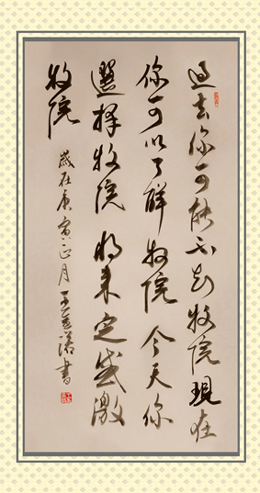 過去你可能不知牧院現在
你可以了解牧院今天你
選择牧院将来定感激
牧院
歲在庚寅正月王書